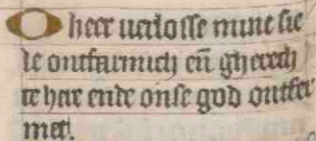 O heer verlosse mine sie
le ontfarmich eñ gherech
te here ende onse god ontfer
met.